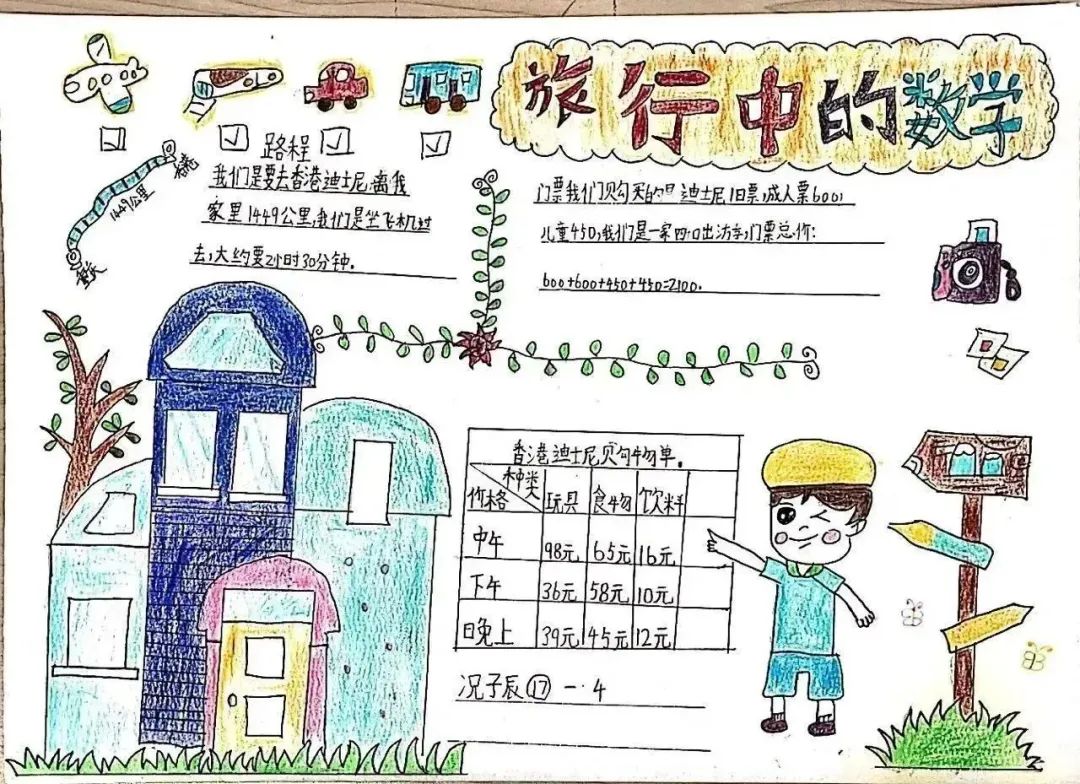 旅行中的数学
路程
我们是要去香港迪士尼,离我
家里1449公里,我们是坐飞机过
去,大约要2小时30分钟。
香港
1449公里
门票我们购买的是迪士尼1日票,成人票600,
儿童450,我们是一家四口出游,门票总价:
600+600+450+450=2100.
香港迪士尼购物单。
价格 种类 玩具 食物 饮料
中午 98元 65元 16元
下午 36元 58元 10元
晚上 39元 45元 12元
况子辰 17 一·4